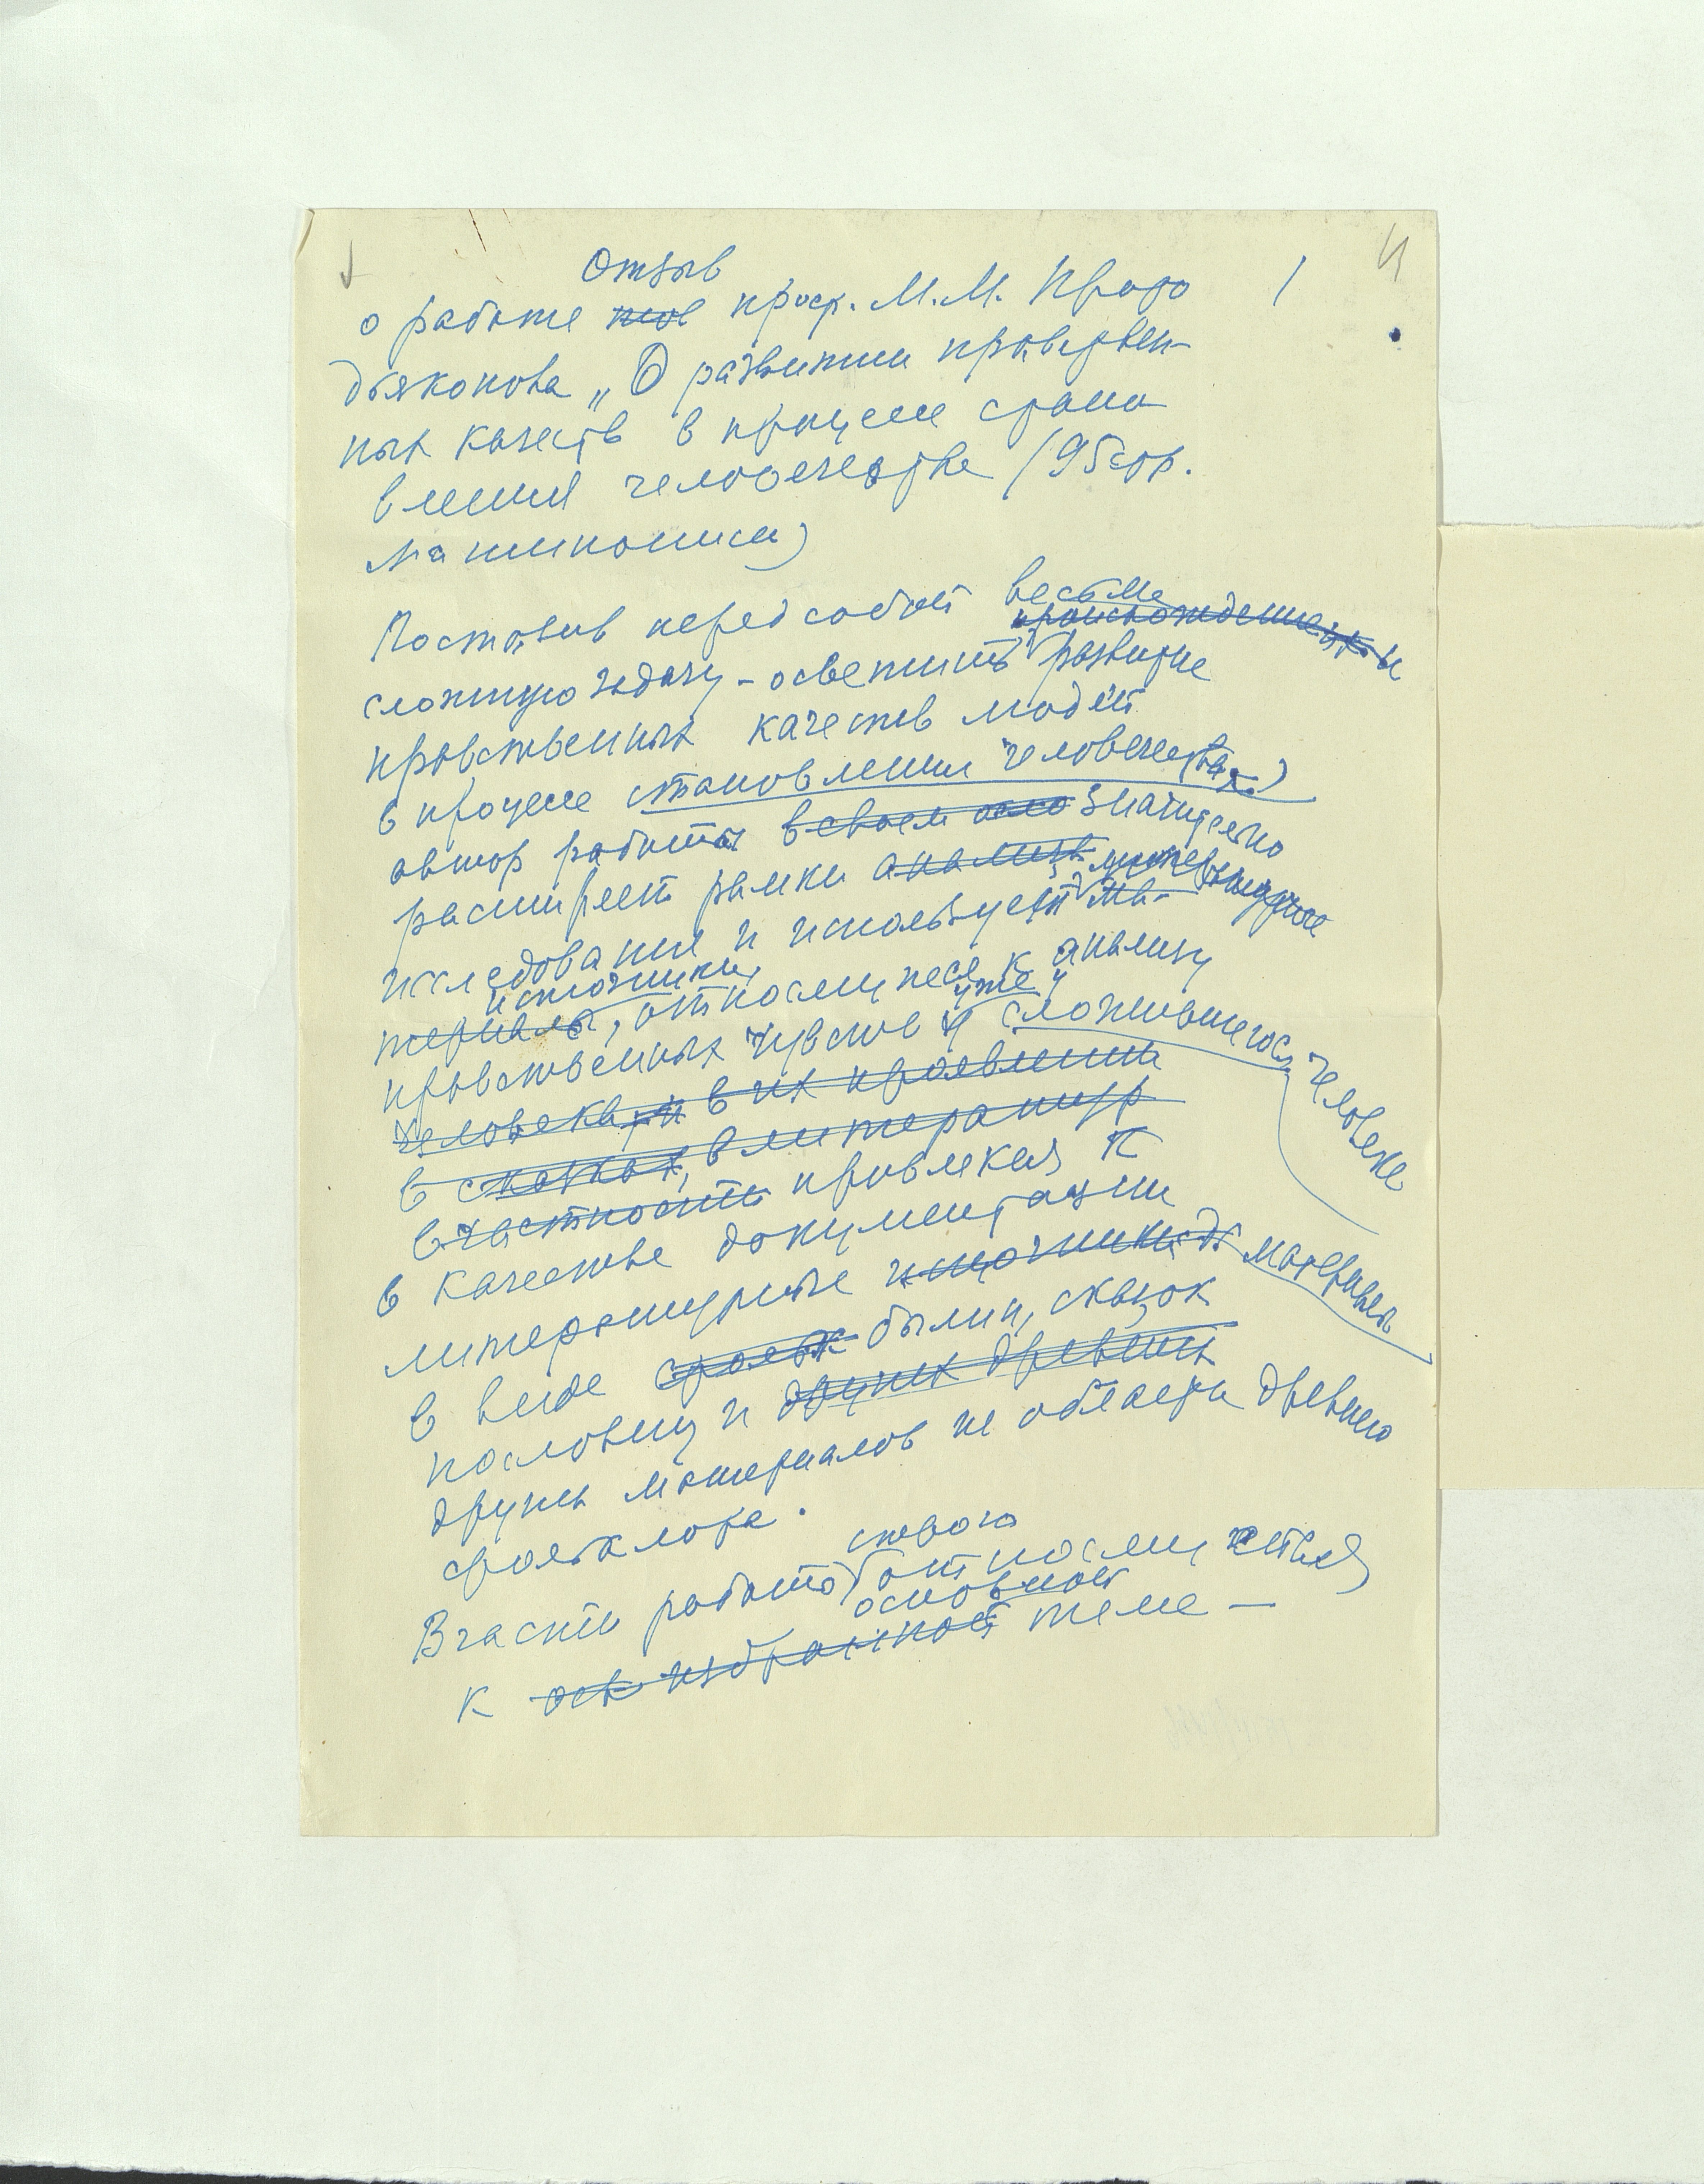 Отзыв
о работе проф. М.М. Прото
дьяконова „О развитии нравствен-
ных качеств в процессе стано
вления человечества (95 стр.
машинописи)
1
Поставив перед собой весьма
происхождение и
сложную задачу – осветить развитие
нравственных качеств людей
в процессе становления человечества
автор работы в своем значительно
расширяет рамки анализ
исследования и использует ма-
источники,
териалы, относящиеся к анализу
уже
нравственных чувств у сложившегося человека
человека, и в их проявлении
в сказках, в литератур
в частности привлекая к
в качестве документации
литературные источники материалы
в виде фольк былин, сказок
пословиц и других древних
других материалов из области древнего
фольклора.
В части работы относящейся
основной
к избранной теме –